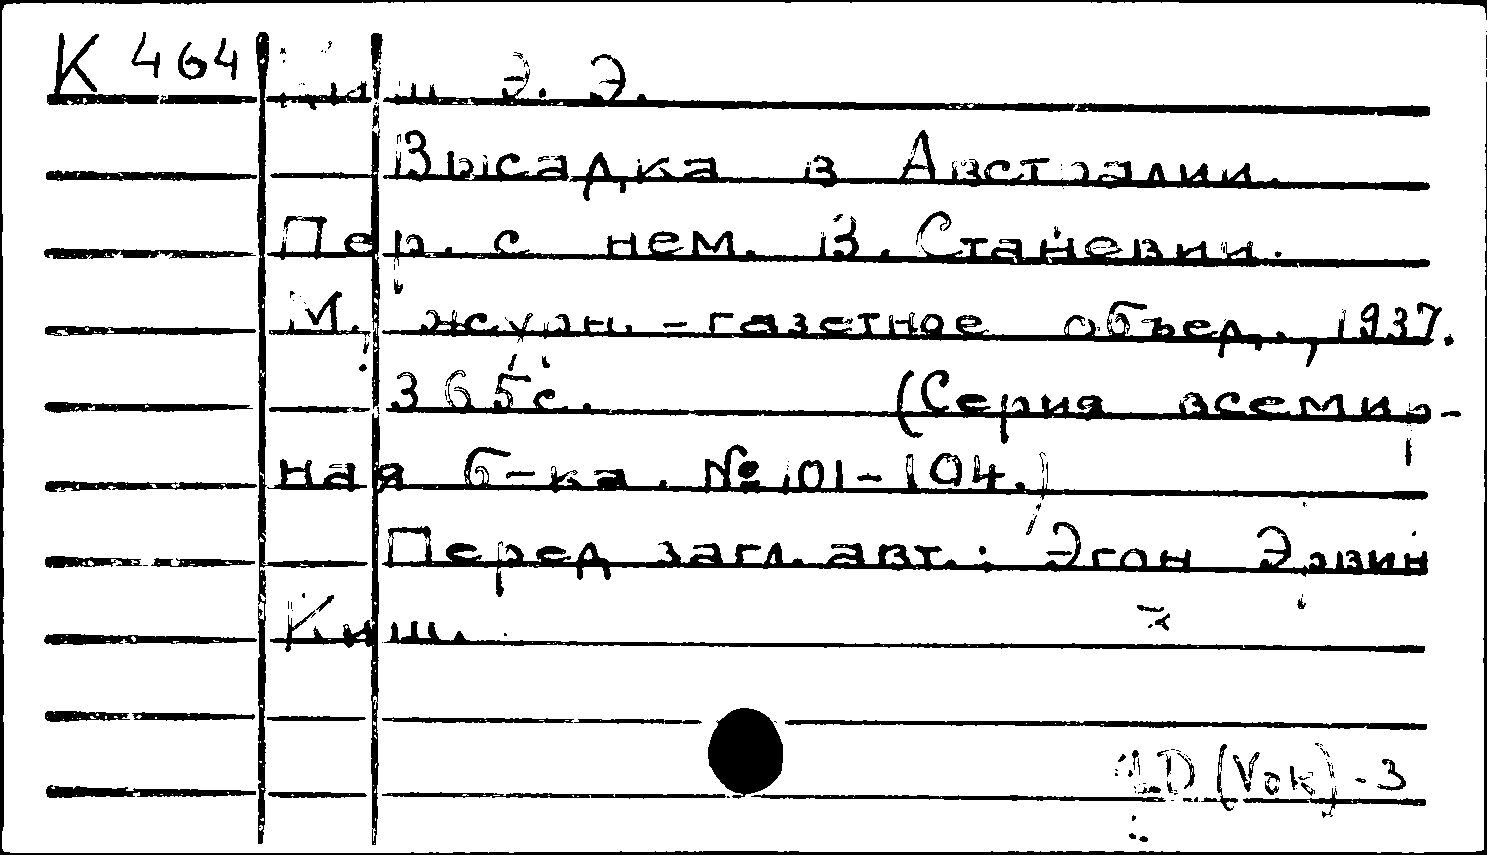 К 464
Киш Э. Э.
Высадка в Австралии.
Пер. с нем. В. Станевич.
М., журн.-газетное объед., 1937.
365с. (Серия всемир-
ная б-ка. № 101-104.)
Перед загл. авт.: Эгон Эрвин
Киш.
(Vok)-3